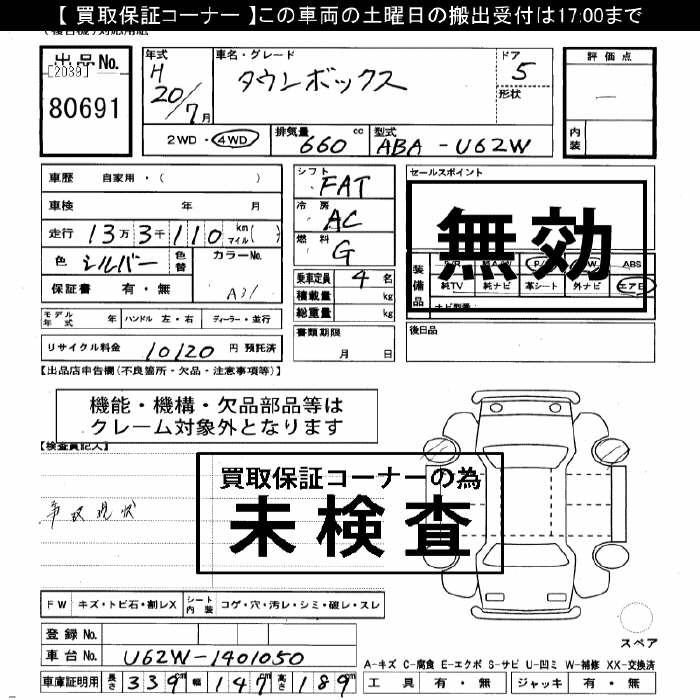 【 買取保証コーナー 】この車両の土曜日の搬出受付は17:00まで
出品No.
[2039]
80691
年式
H
20/7月
車名・グレード
タウンボックス
ドア
5
形状
評価点
内装
2WD・4WD
排気量 660 cc
型式 ABA-U62W
車歴 自家用・( )
車検 年 月
走行 13万3千110 km マイル( )
色 シルバー 色替 カラーNo.
A31
保証書 有・無
シフト
FAT
冷房
AC
燃料
G
乗車定員 4 名
積載量 kg
総重量 kg
書類期限
月 日
セールスポイント
無効
装備品
ABS
純TV 純ナビ 革シート 外ナビ エアB
後日品
モデル年式 年 ハンドル 左・右 ディーラー・並行
リサイクル料金 10120 円 預託済
【出品店申告欄(不良箇所・欠品・注意事項等)】
機能・機構・欠品部品等は
クレーム対象外となります
【検査員記入】
買取保証コーナーの為
未検査
事故現状
FW キズ・トビ石・割レX シート内装 コゲ・穴・汚レ・シミ・破レ・スレ
登録No.
車台No. U62W-1401050
車庫証明用 長さ 339 幅 147 高さ 189
スペア
A-キズ C-腐食 E-エクボ S-サビ U-凹ミ W-補修 XX-交換済
工具 有・無 ジャッキ 有・無